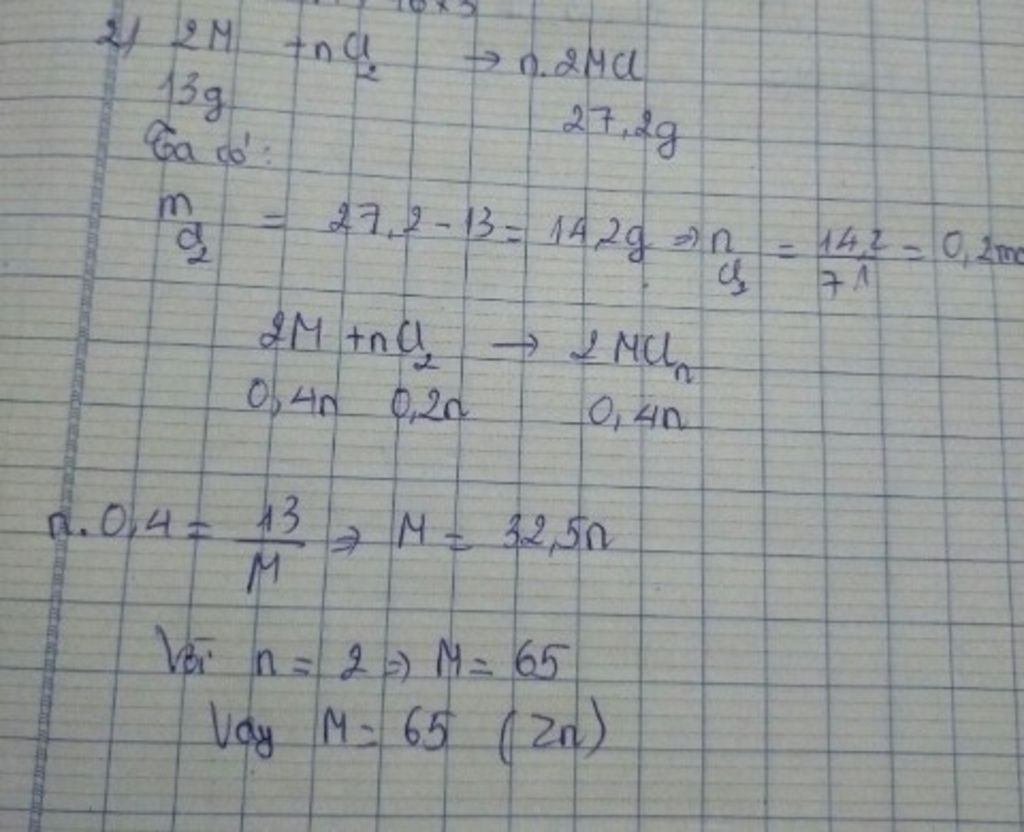 2/ 2M + nCl₂ → n.2MCl
13g 27,2g
Ta có:
m Cl₂ = 27,2 - 13 = 14,2g ⇒ n Cl₂ = 14,2/71 = 0,2mo
2M + nCl₂ → 2MClₙ
0,4n 0,2n 0,4n
n.0,4 = 13/M ⇒ M = 32,5n
Với n = 2 ⇒ M = 65
Vậy M = 65 (Zn)